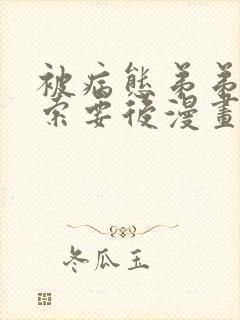 被病態弟弟
索要後漫畫
冬瓜玉